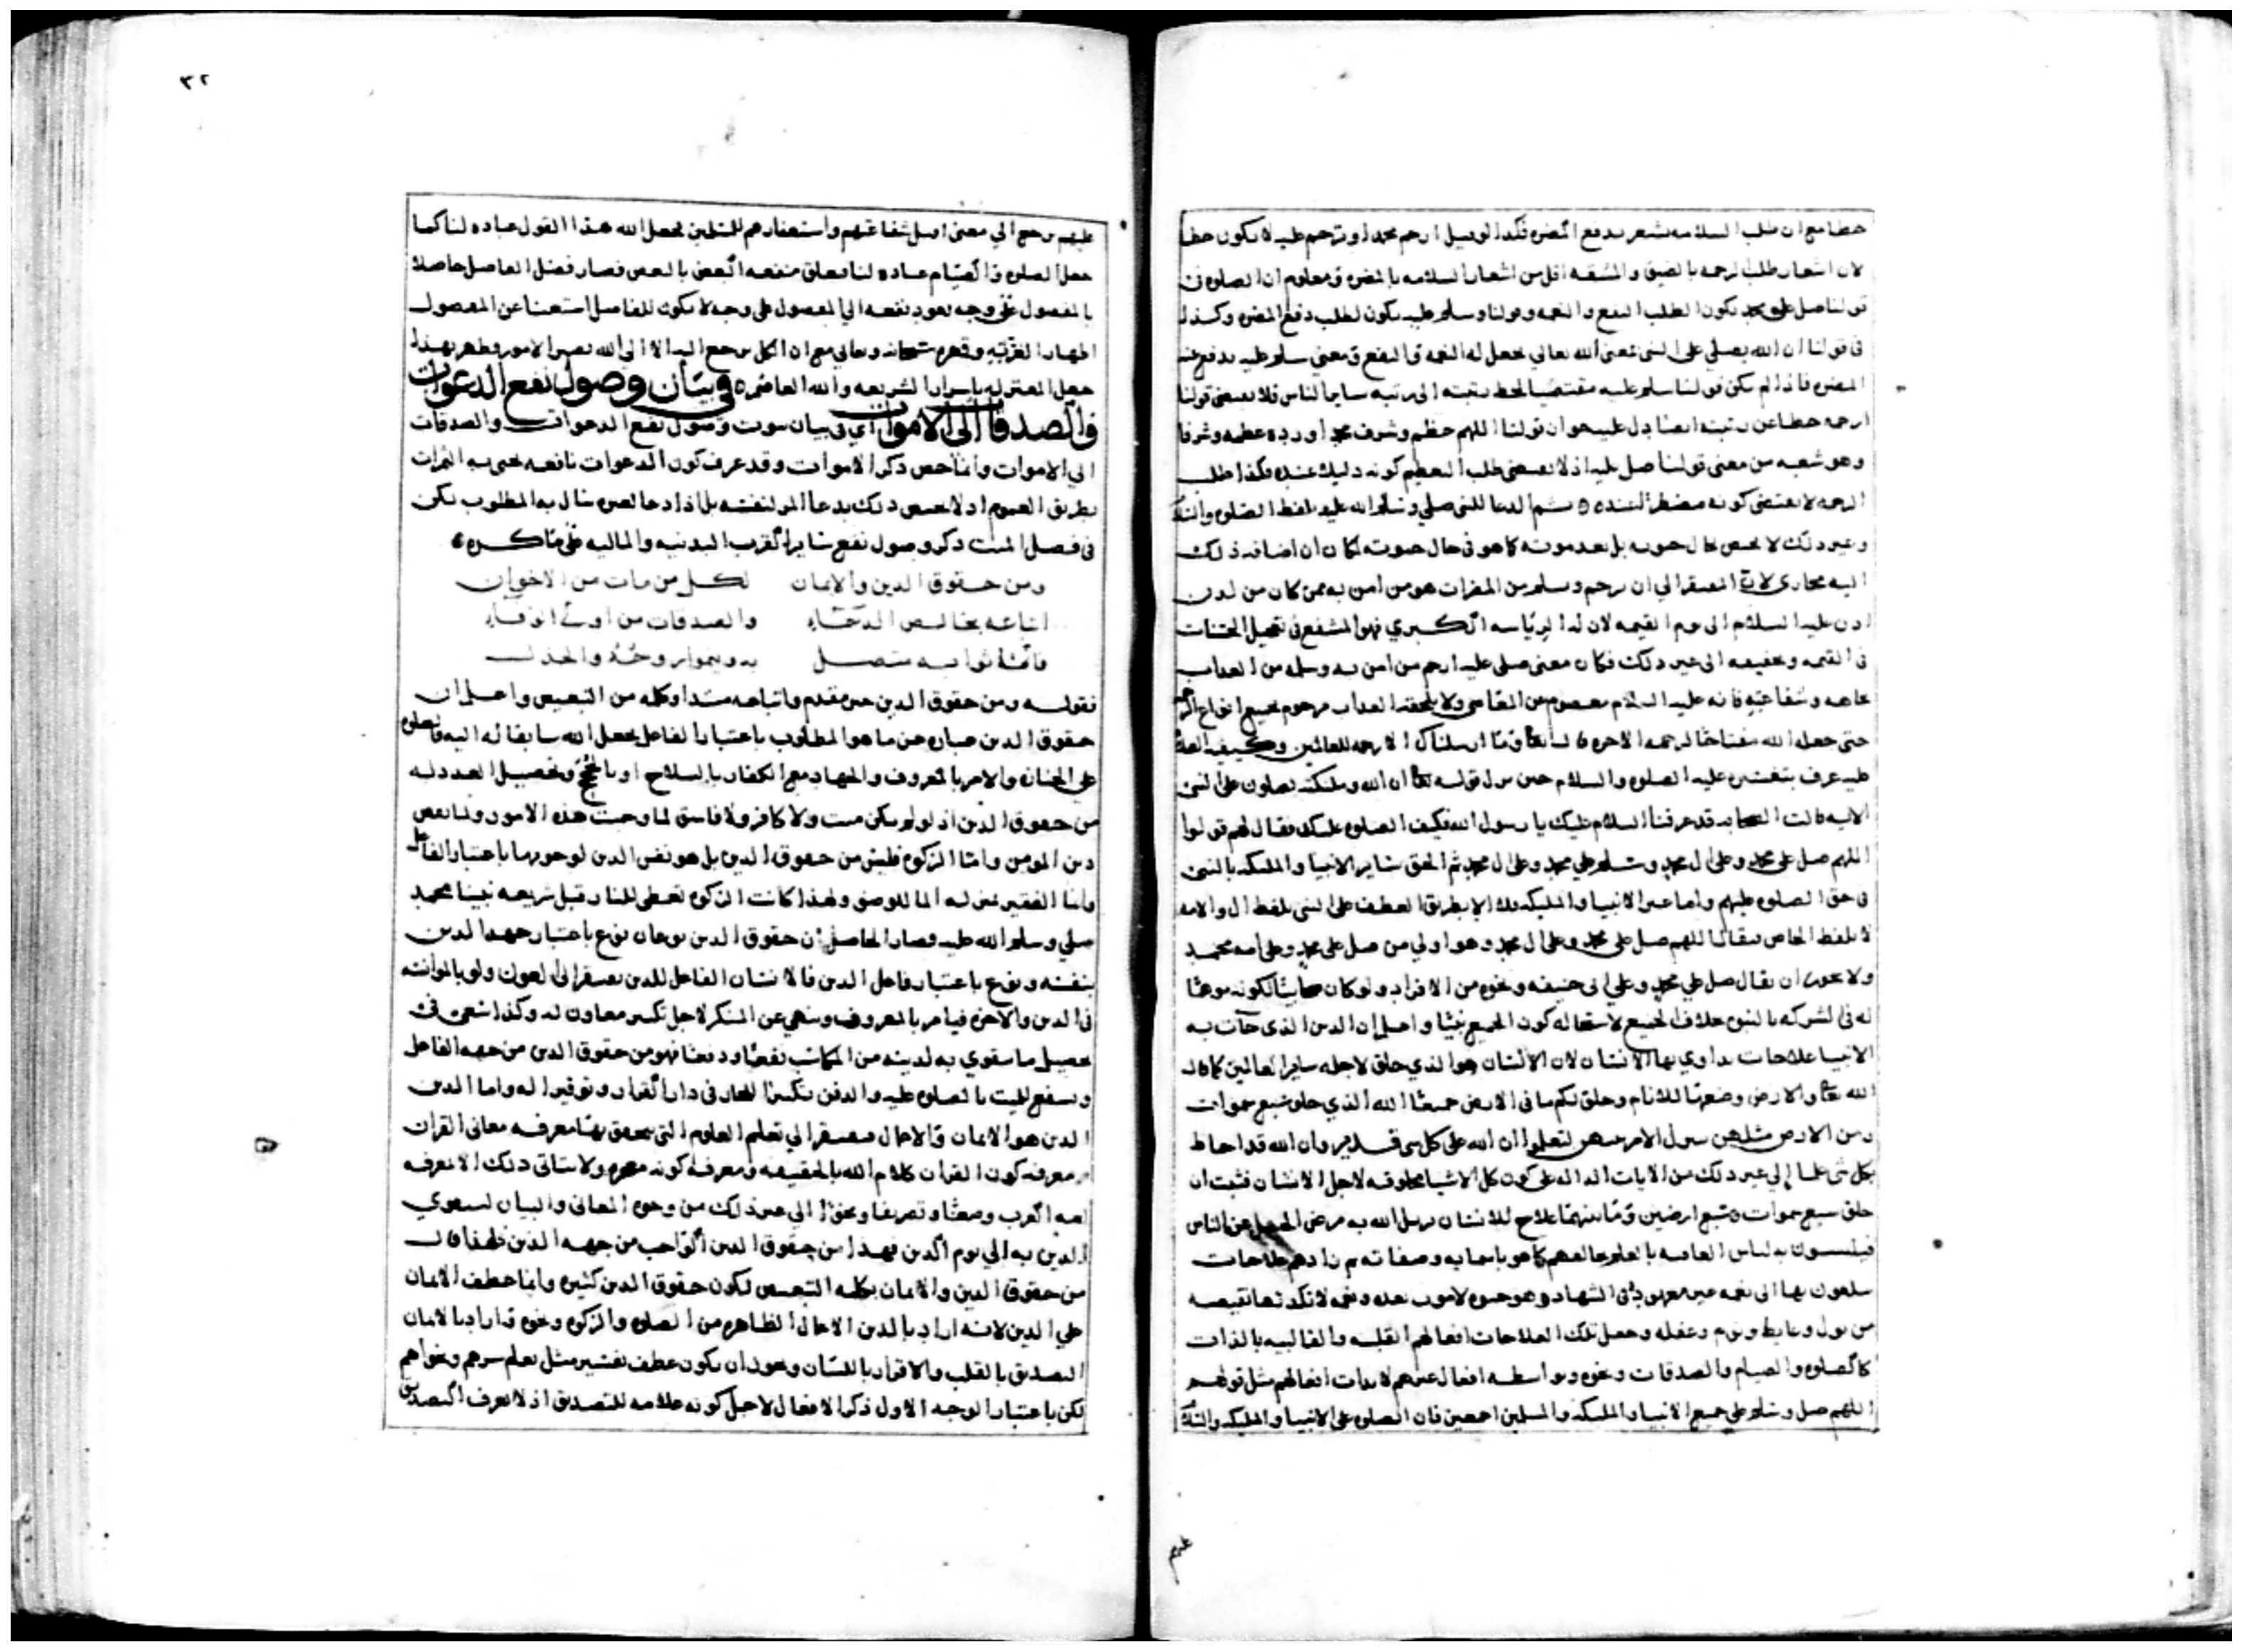 حطا مع ان طلب السلامه تشعر بدفع المضره فكذا لو قيل ارحم محمدا وترحم عليه لا يكون حطا
لان اشعار طلب الرحمه بالضيق والمشقه اقل من اشعار السلامه بالمضره ومعلوم ان الصلوه في
قولنا صل على محمد يكون لطلب النفع والنعمه وقولنا وسلم عليه يكون لطلب دفع المضره وكذلك
في قولنا ان الله يصلي على النبي بمعنى الله تعالى يجعل له النعمه والنفع ومعنى سلم عليه يدفع عنه
المضره فاذا لم يكن قولنا سلم عليه مقتضيا لحط رتبته الى رتبه ساير الناس فلا يقتضي قولنا
ارحمه حطا عن رتبته ايضا دل عليه هو ان قولنا اللهم عظم وشرف محمدا وزده عظمه وشرفا
وهو شعبه من معنى قولنا صل عليه اذ لا يقتضي طلب التعظيم كونه ذليلا عنده فكذا طلب
الرحمه لا يقتضي كونه مضطرا عنده ثم الدعا للنبي صلى وسلم الله عليه بلفظ الصلوه والسلام
وغير ذلك لا يختص بحال حيوته بل بعد موته كما هو في حال حيوته لكان ان اضافه ذلك
اليه مجازي لان المفتقر الى ان يرحم ويسلم من المضرات هو من امن به ممن كان من لدن
ادم عليه السلام الى يوم القيمه لان له الرياسه الكبرى فهو المشفع في تعجيل الحساب
في القيمه وتخفيفه الى غير ذلك فكان معنى صلى عليه ارحم من امن به وسلمه من العذاب
بجاهه وشفاعته فانه عليه السلام معصوم من المعاصي ولا يلحقه العذاب مرحوم بجميع انواع الرحم
حتى جعله الله مفتاحا لرحمه الاخره قال تعالى وما ارسلناك الا رحمه للعالمين وكيفيه الصلوه
عليه عرف بتفسيره عليه الصلوه والسلام حين نزل قوله تعالى ان الله وملئكته يصلون على النبي
الايه قالت الصحابه قد عرفنا السلام عليك يا رسول الله فكيف الصلوه عليك فقال لهم قولوا
اللهم صل على محمد وعلى ال محمد وسلم على محمد وعلى ال محمد ثم الحق ساير الانبيا والملئكه بالنبي
في حق الصلوه عليهم واما غير الانبيا والملئكه فلا الا بطريق العطف على النبي بلفظ ال والامه
لا بلفظ الخاص فيقال اللهم صل على محمد وعلى ال محمد وهو اولى من صل على محمد وعلى امه محمد
ولا يجوز ان يقال صل على محمد وعلى ابي حنيفه ونحوه من الافراد ولو كان صحابيا لكونه موهما
له في الشركه بالنبوه بخلاف الجميع لاستحاله كون الجميع نبيا واعلم ان الدين الذي جات به
الانبيا علاجات يداوي بها الانسان لان الانسان هو الذي خلق لاجله ساير العالمين كما قال
الله تعالى والارض وضعها للانام وخلق لكم ما في الارض جميعا الله الذي خلق سبع سموات
ومن الارض مثلهن يتنزل الامر بينهن لتعلموا ان الله على كل شي قدير وان الله قد احاط
بكل شي علما الى غير ذلك من الايات الداله على كون كل الاشيا مخلوقه لاجل الانسان فثبت ان
خلق سبع سموات وسبع ارضين وما بينهما علاج للانسان يزيل الله به مرض الجهل عن الناس
فيلبسون به لباس العافيه بالعلم بخالقهم كما هو باسمايه وصفاته ثم زادهم علاجات
يبلغون بها الى نعمه غير معهوده في الشهاده وهو حيوه لا موت بعده ونعمه لا تكدرها نقيصه
من بول وغايط ونوم وغفله وجعل تلك العلاجات افعالهم القلبيه والقالبيه بالذات
كالصلوه والصيام والصدقات ونحوه وبواسطه افعال غيرهم لا بذات افعالهم مثل قولهم
اللهم صل وسلم على جميع الانبيا والملئكه والمسلمين اجمعين فان الصلوه على الانبيا والملئكه والسلام
عليهم
٣٢
عليهم يرجع الى معنى اقبل شفاعتهم واستغفارهم للمسلمين فجعل الله هذا القول عباده لنا كما
جعل الصلوه والصيام عباده لنا فعلق منفعه البعض بالبعض فصار فضل الفاضل حاصلا
بالمفضول على وجه يعود نفعه الى المفضول على وجه لا يكون للفاضل استغنا عن المفضول
اظهارا لعزته وقهره سبحانه وتعالى مع ان الكل يرجع اليه الا الى الله تصير الامور وظهر بهذا
جهل المعتزله باسرار الشريعه والله العاصم في بيان وصول نفع الدعوات
والصدقات الى الاموات اي في بيان ثبوت وصول نفع الدعوات والصدقات
الى الاموات وانما خص ذكر الاموات وقد عرف كون الدعوات نافعه يجنى به الثمرات
بطريق العموم اذ لا يختص ذلك بدعا المر لنفسه بل اذا دعا لغيره ينال به المطلوب لكن
في فصل الميت ذكر وصول نفع ساير القرب البدنيه والماليه على ما ذكره
ومن حقوق الدين والايمان لكل من مات من الاخوان
اتباعه بخالص الدعاء والصدقات من اولي الوفاء
فانها ثوابه متصل به
فقوله ومن حقوق الدين خبر مقدم واتباعه مبتدا وكلمه من التبعيض واعلم ان
حقوق الدين عباره عن ما هو المطلوب باعتبار الفاعل بجعل الله سايقا له اليه فالصلوه
على الجنازه والامر بالمعروف والجهاد مع الكفار بالسلاح او بالحجج وتحصيل العدد له
من حقوق الدين اذ لو لم يكن ميت ولا كافر ولا فاسق لما وجبت هذه الامور ولما نقص
دين المومن واما الزكوه فليس من حقوق الدين بل هو نفس الدين لوجوبها باعتبار الفاعل
واما الفقير فمنزله الما للوضوء ولهذا كانت الزكوه تعطى للنار قبل شريعه نبينا محمد
صلى وسلم الله عليه فصار الحاصل ان حقوق الدين نوعان نوع باعتبار جهه الدين
بنفسه ونوع باعتبار فاعل الدين فالانسان الفاعل للدين يفتقر الى العون ولو بالموانسه
في الدين والاخره فيامر بالمعروف وينهى عن المنكر لاجل تكثير معاون له وكذا يسعى في
تحصيل ما يتقوى به لدينه من المكاسب نفعا ودفعا فهو من حقوق الدين من جهه الفاعل
وينتفع الميت بالصلوه عليه والدفن تكثيرا للجار في دار القرار وتوقيرا له واما الدين
الدين هو الايمان والاعمال فيفتقر الى تعلم العلوم التي يتحقق بها معرفه معاني القران
ومعرفه كون القران كلام الله بالحقيقه ومعرفه كونه معجزه ولا يتاتى ذلك الا بمعرفه
لغه العرب وضعا وتصريفا ونحوا الى غير ذلك من وجوه المعاني والبيان ليتقوى
الدين به الى يوم الدين فهذا من حقوق الدين الواجب من جهه الدين فلهذا قال
من حقوق الدين والايمان بكلمه التبعيض لكون حقوق الدين كثيره وانما عطف الايمان
على الدين لانه اراد بالدين الاعمال الظاهره من الصلوه والزكوه ونحوه واراد بالايمان
التصديق بالقلب والاقرار باللسان ويجوز ان يكون عطف تفسير مثل نعلم سرهم ونجواهم
لكن باعتبار الوجه الاول ذكر الافعال لاجل كونه علامه للتصديق اذ لا يعرف التصديق